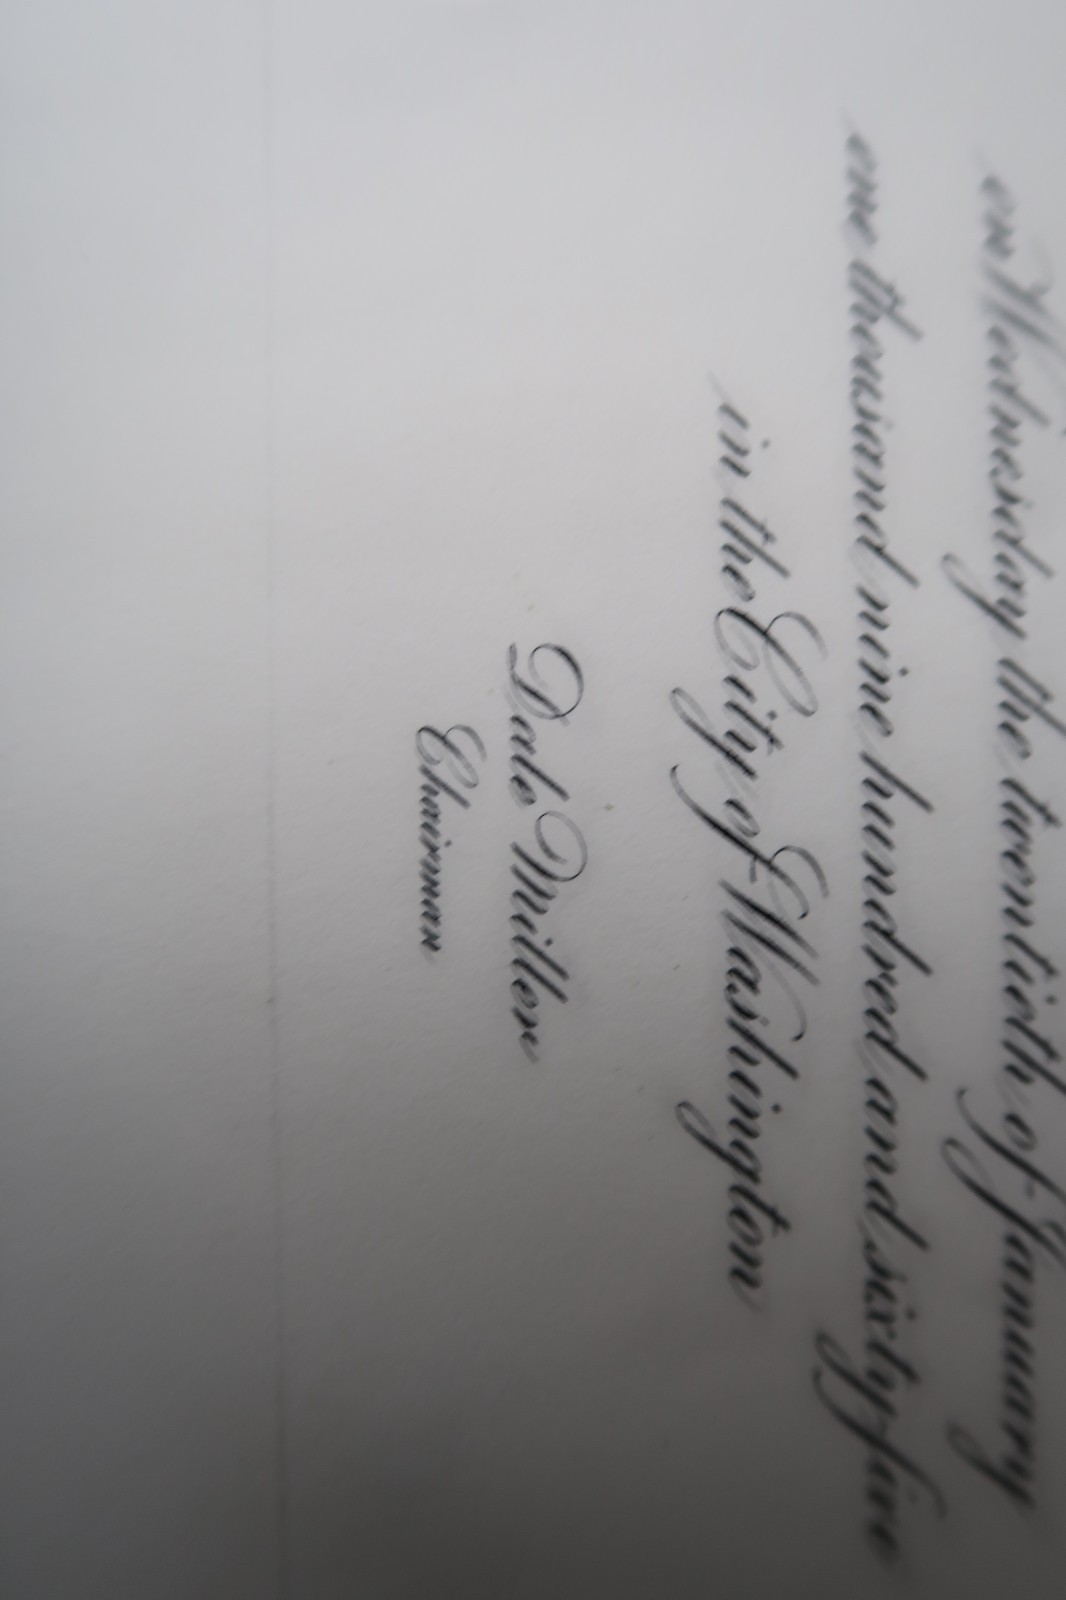 on Wednesday the twentieth of January
one thousand nine hundred and sixty five
in the City of Washington
Dale Miller
Chairman